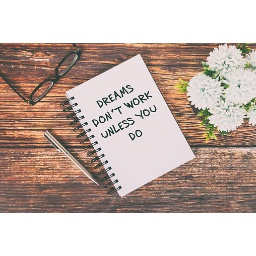 DREAMS
DON'T WORK
UNLESS YOU
DO